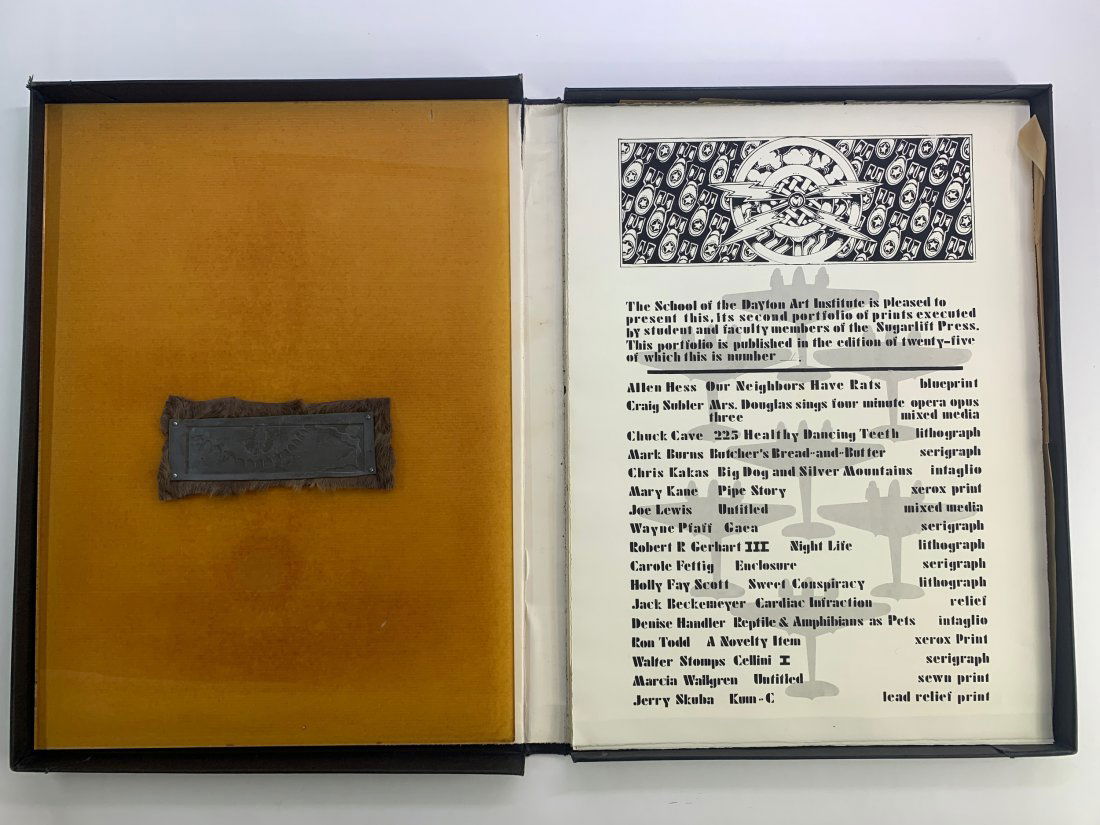 The School of the Dayton Art Institute is pleased to
present this, its second portfolio of prints executed
by student and faculty members of the Sugarlift Press.
This portfolio is published in the edition of twenty-five
of which this is number
Allen Hess Our Neighbors Have Rats blueprint
Craig Subler Mrs. Douglas sings four minute opera opus
three mixed media
Chuck Cave 225 Healthy Dancing Teeth lithograph
Mark Burns Butcher's Bread-and-Butter serigraph
Chris Kakas Big Dog and Silver Mountains intaglio
Mary Kane Pipe Story xerox print
Joe Lewis Untitled mixed media
Wayne Pfaff Gaea serigraph
Robert R Gerhart III Night Life lithograph
Carole Fettig Enclosure serigraph
Holly Fay Scott Sweet Conspiracy lithograph
Jack Beckemeyer Cardiac Infraction relief
Denise Handler Reptile & Amphibians as Pets intaglio
Ron Todd A Novelty Item xerox Print
Walter Stomps Cellini I serigraph
Marcia Wallgren Untitled sewn print
Jerry Skuba Kum-C lead relief print